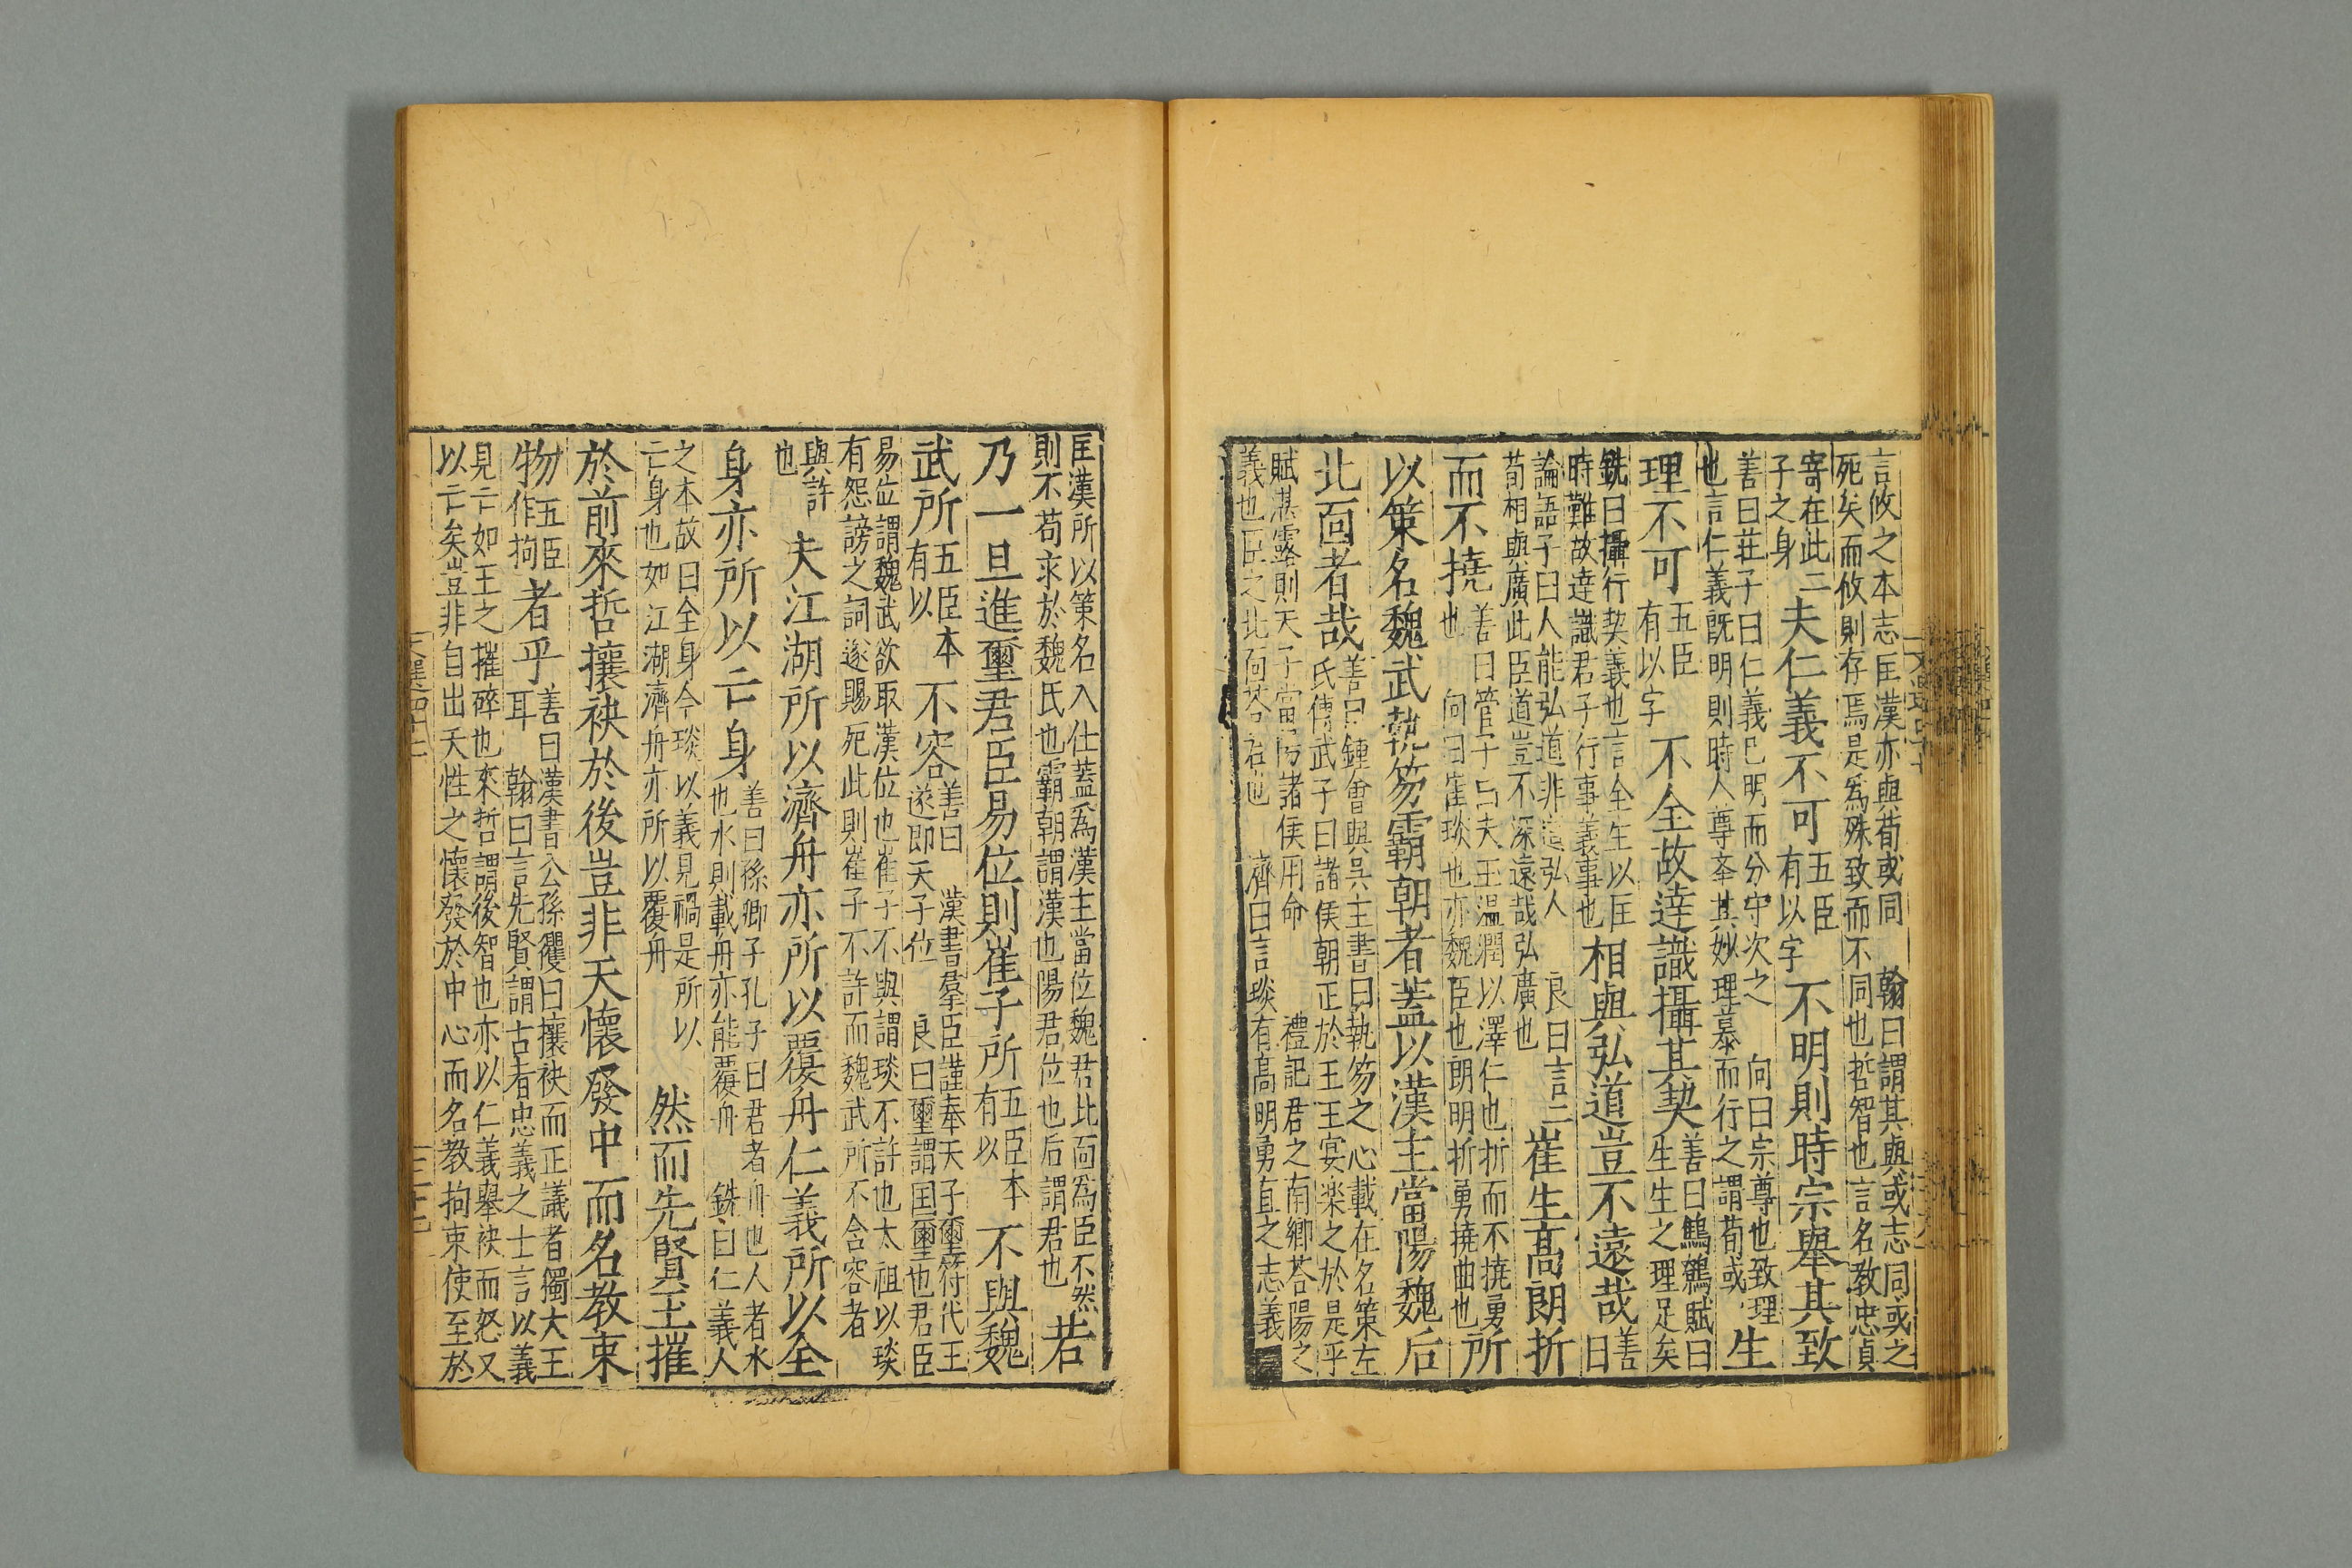 言攸之本志匡漢亦與荀彧同　翰曰謂其與彧志同彧之
死矣而攸則存焉是爲殊致而不同也哲智也言名教忠貞
寄在此二
子之身
夫仁義不可
五臣
有以字
不明則時宗舉其致
善曰莊子曰仁義已明而分守次之　向曰宗尊也致理
也言仁義旣明則時人尊奉其妙理慕而行之謂荀彧
生
理不可
五臣
有以字
不全故達識攝其契
善曰鷦鷯賦曰
生生之理足矣
銑曰攝行契義也言全生以匡
時難故達識君子行事義事也
相與弘道豈不遠哉
善
曰
論語子曰人能弘道非道弘人　良曰言二
荀相與廣此臣道豈不深遠哉弘廣也
崔生高朗折
而不撓
善曰管子曰夫玉温潤以澤仁也折而不撓勇
也　向曰崔琰也亦魏臣也朗明折勇撓曲也
所
以策名魏武執笏霸朝者蓋以漢主當陽魏后
北面者哉
善曰鍾會與吳主書曰執笏之心載在名策左
氏傳武子曰諸侯朝正於王王宴楽之於是乎
賦湛露則天子當陽諸侯用命　禮記君之南鄉荅陽之
義也臣之北面荅君也　濟曰言琰有高明勇直之志義
匡漢所以策名入仕蓋爲漢主當位魏君北面爲臣不然
則不苟求於魏氏也霸朝謂漢也陽君位也后謂君也
若
乃一旦進璽君臣易位則崔子所
五臣本
有以
不與魏
武所
五臣本
有以
不容
善曰　漢書羣臣謹奉天子璽符代王
遂即天子位　良曰璽謂国璽也君臣
易位謂魏武欲取漢位也崔子不與謂琰不許也太祖以琰
有怨謗之詞遂賜死此則崔子不許而魏武所不含容者
與許
也
夫江湖所以濟舟亦所以覆舟仁義所以全
身亦所以亡身
善曰孫卿子孔子曰君者舟也人者水
也水則載舟亦能覆舟　銑曰仁義人
之本故曰全身今琰以義見禍是所以
亡身也如江湖濟舟亦所以覆舟
然而先賢玉摧
於前來哲攘袂於後豈非天懷發中而名教束
物
五臣
作拘
者乎
善曰漢書公孫玃曰攘袂而正議者獨大王
耳　翰曰言先賢謂古者忠義之士言以義
見亡如玉之摧碎也來哲謂後智也亦以仁義舉袂而怒又
以亡矣豈非自出天性之懷發於中心而名教拘束使至於
文選四十七